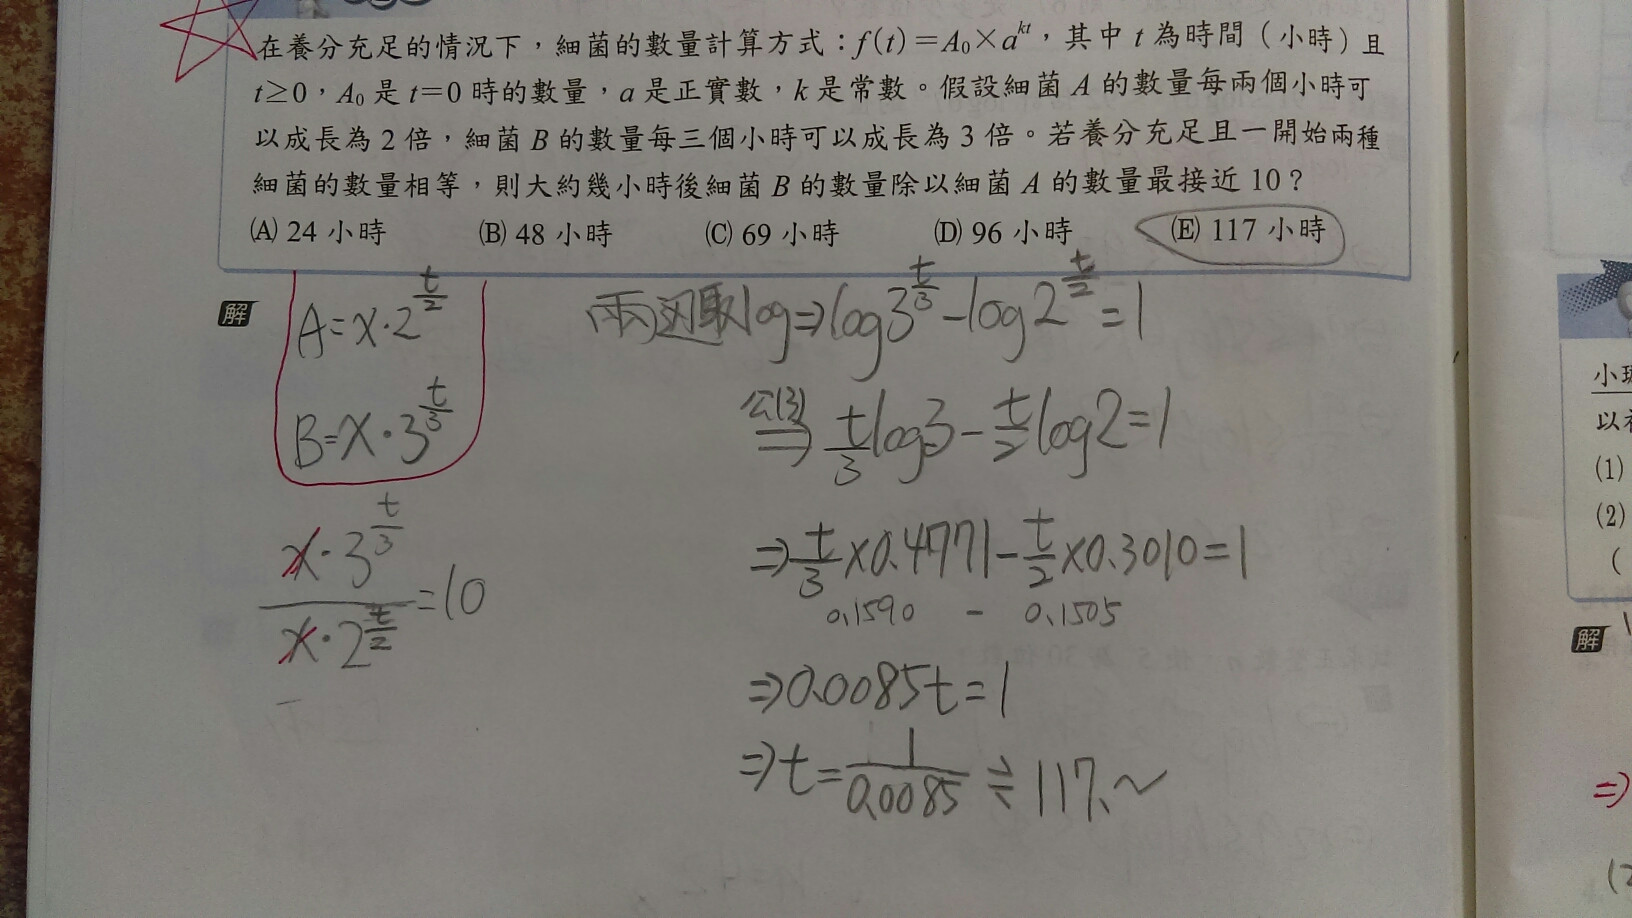 在養分充足的情況下，細菌的數量計算方式：f(t)=A₀×a^{kt}，其中 t 為時間（小時）且
t≥0，A₀ 是 t=0 時的數量，a 是正實數，k 是常數。假設細菌 A 的數量每兩個小時可
以成長為 2 倍，細菌 B 的數量每三個小時可以成長為 3 倍。若養分充足且一開始兩種
細菌的數量相等，則大約幾小時後細菌 B 的數量除以細菌 A 的數量最接近 10？
(A) 24 小時 (B) 48 小時 (C) 69 小時 (D) 96 小時 (E) 117 小時
解
A=x·2^{t/2}
B=x·3^{t/3}
x·3^{t/3} / x·2^{t/2} =10
兩邊取log⇒log3^{t/3}-log2^{t/2}=1
公(3)
⇒ t/3 log3 - t/2 log2=1
⇒ t/3 ×0.4771 - t/2 ×0.3010=1
0.1590 - 0.1505
⇒0.0085t=1
⇒t= 1/0.0085 ≒ 117.~
以
(1)
(2)
(
解
⇒